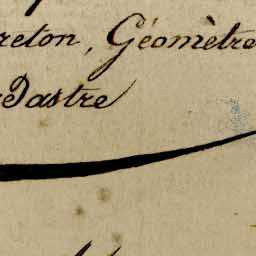 reton, Géomètre
edastre